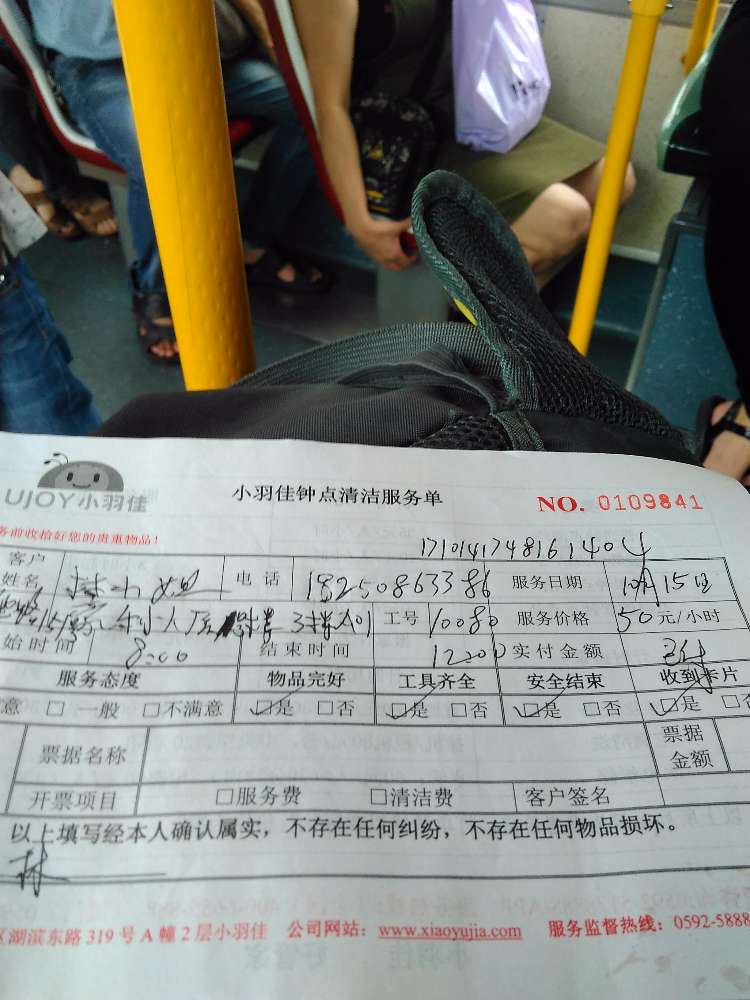 UJOY小羽佳
小羽佳钟点清洁服务单
NO. 0109841
务前收拾好您的贵重物品!
1710141748161404
客户姓名 林小姐 电话 18250863386 服务日期 10月15日
工号 10080 服务价格 50元/小时
始时间 8:00 结束时间 12:00 实付金额 已付
服务态度 物品完好 工具齐全 安全结束 收到卡片
意 □一般 □不满意 ☑是 □否 ☑是 □否 ☑是 □否 ☑是 □否
票据名称 票据金额
开票项目 □服务费 □清洁费 客户签名
以上填写经本人确认属实，不存在任何纠纷，不存在任何物品损坏。
林
区湖滨东路 319 号 A 幢 2 层小羽佳 公司网站：www.xiaoyujia.com 服务监督热线：0592-5888